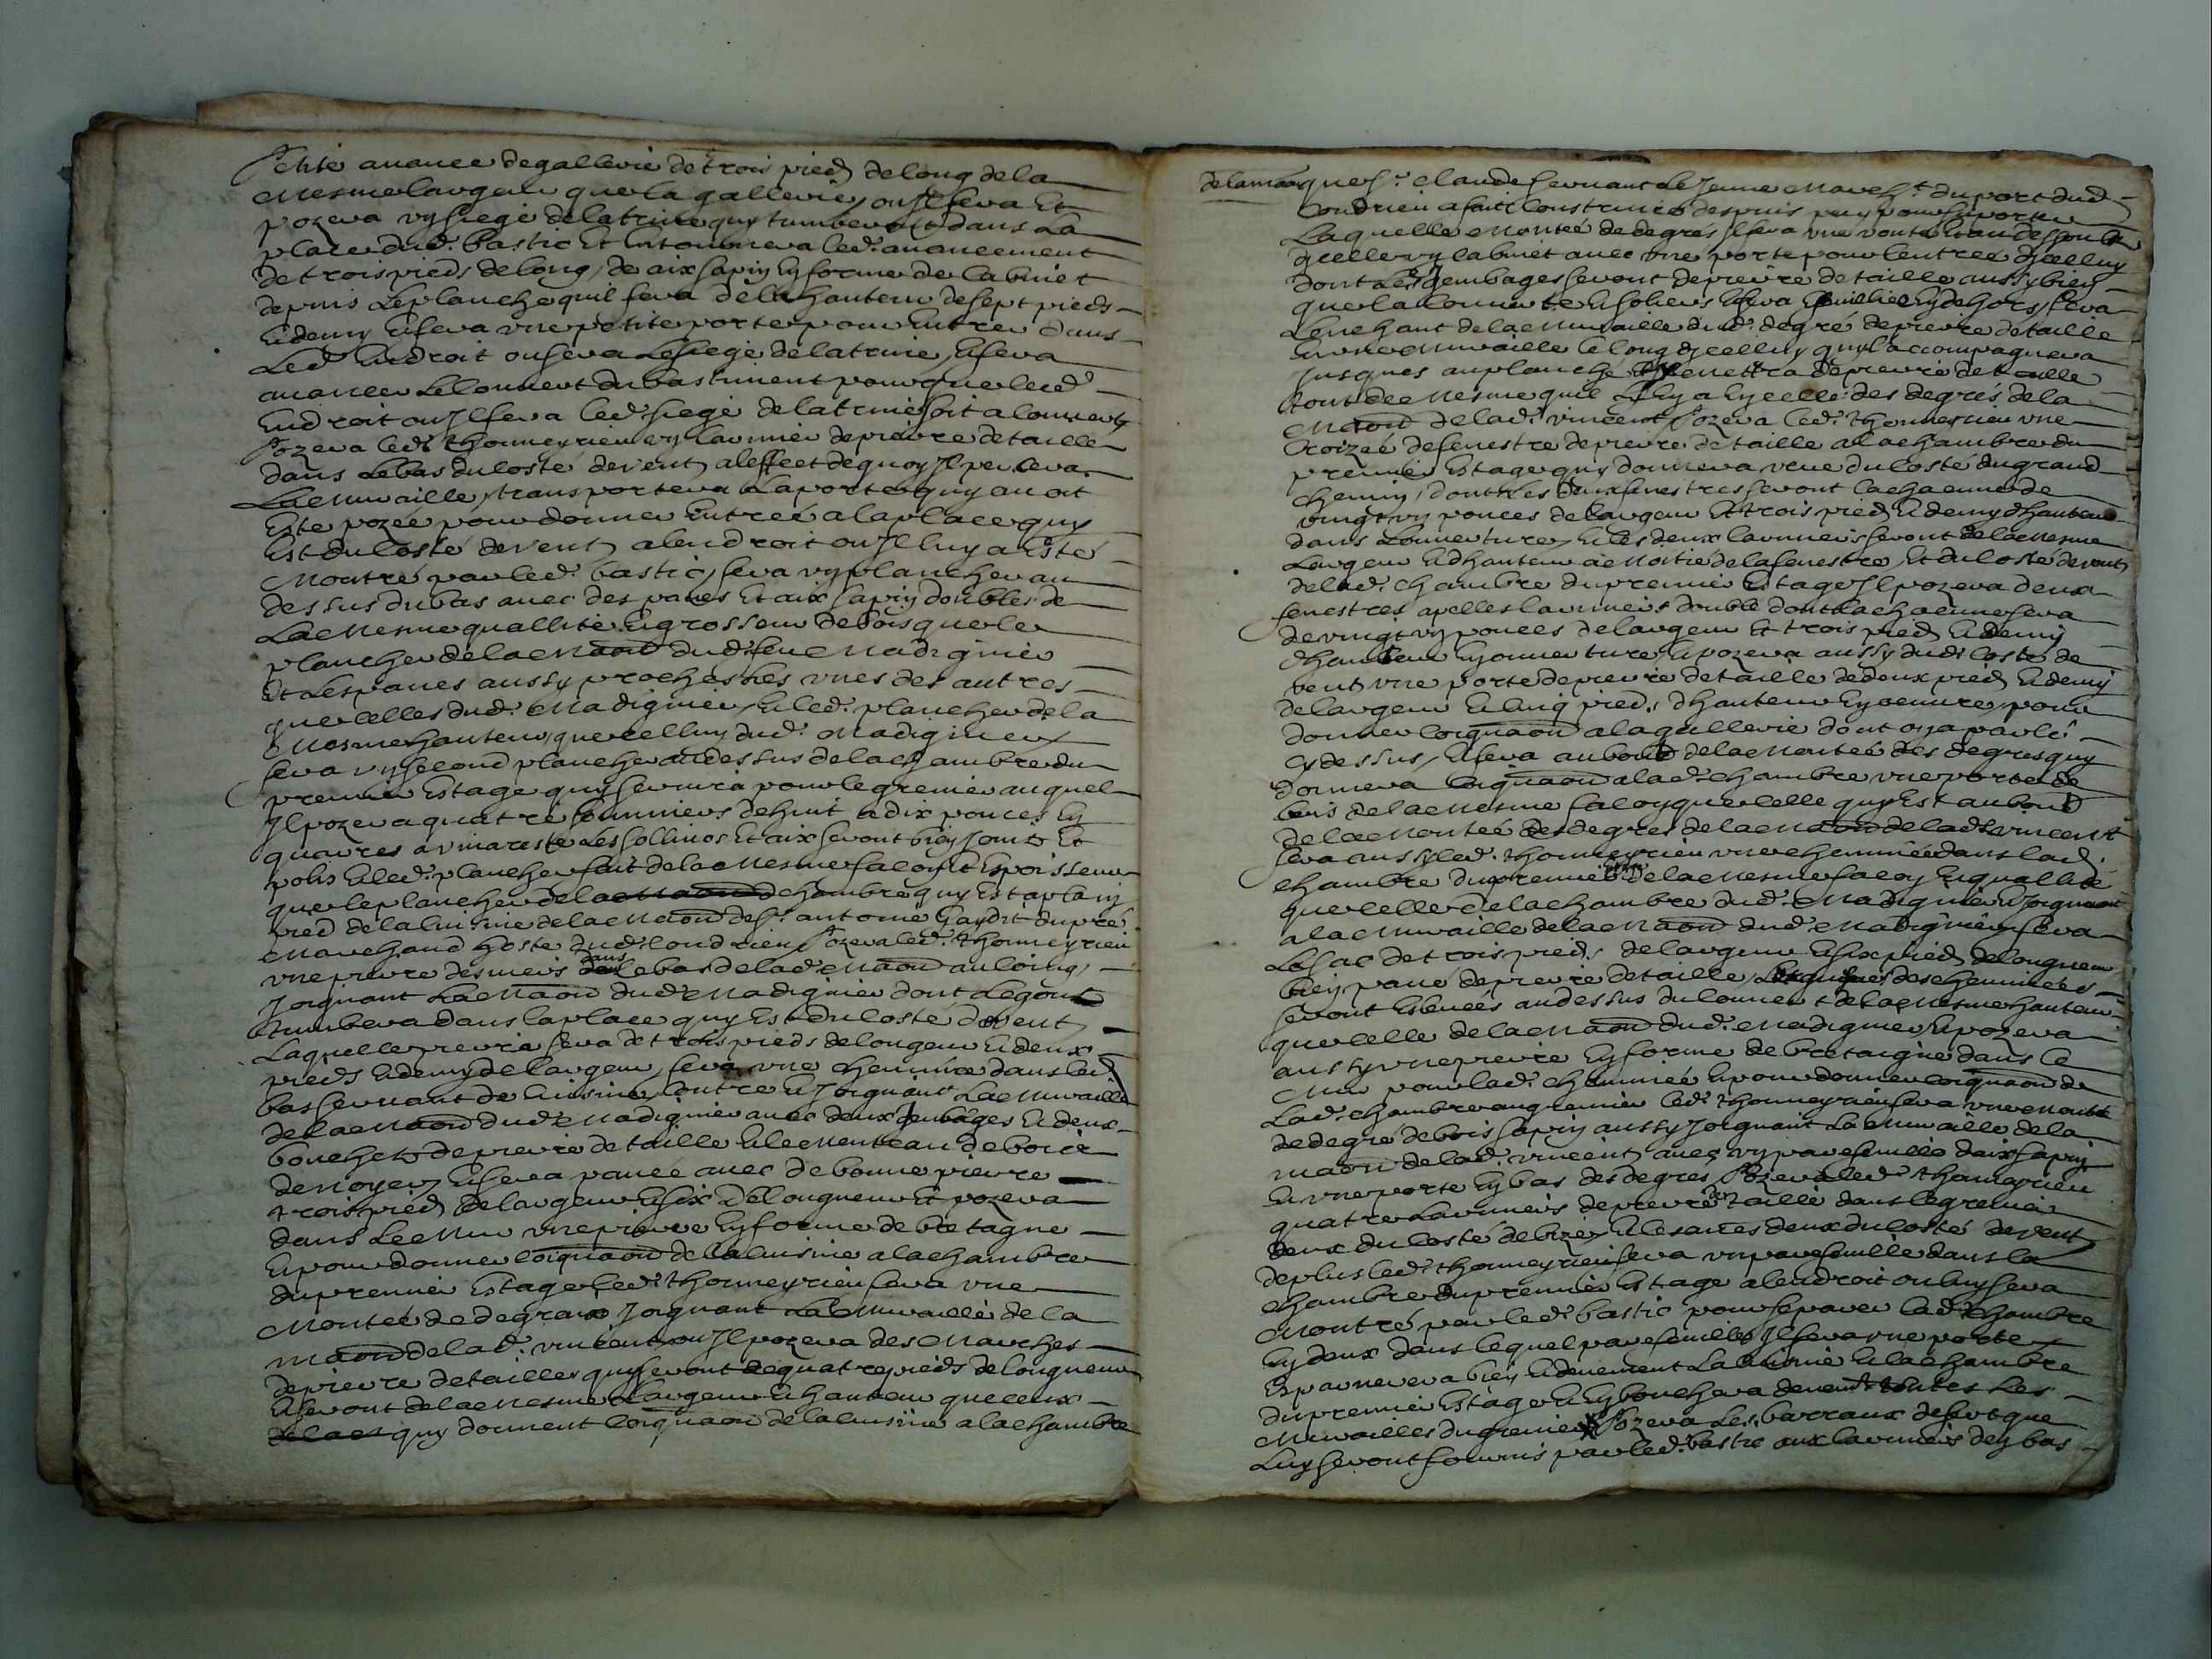 Petite avancee de gallerie de trois pieds de long de la
mesme largeur que la gallerie, ou Il fera Et
pozera vn siege de latrine quy tumberont dans La
place dud. bastie Et Entournera led. avancement
de trois pieds de long, de aix sapin En forme de Cabinet
depuis Le planche quil fera de la hauteur de sept pieds
Et demy Et fera vne petite porte pour Entrer dans
Led. Endroit ou sera Le siege de latrine, Et fera
avancer Le Couvert du bastiment pour que led.
Endroit ou Il fera led. siege de latrine soit a Couvert
Pozera led. thomeyrieu vn larmier de pierre de taille
dans Le bas du Costé de vent, a leffect de quoy Il percera
La Muraille, transportera La porte quy avoit
Esté pozée pour donner Entrée a la place quy
Est du Costé de vent, a lendroit ou Il luy a Esté
Montré par led. bastie, fera vn plancher au
dessus du bas avec des panes Et aix sapin doubles de
La Mesme quallité Et grosseur de bois que le
plancher de la Maon dud. feu Madignier
Et Les panes aussy proches Les vnes des autres
que celles dud. Madignier, Et led. plancher de la
Mesme hauteur que celluy dud. Madignier
fera vn second plancher au dessus de la chambre du
premier Estage quy servira pour le grenier auquel
Il pozera quatre sommiers de huit a dix pouces En
quarres a vivareste Les sollives Et aix seront bien Joints Et
polis Et led. plancher fait de la Mesme facon Et Espoisseur
que le plancher de la Maon chambre quy Est a plain
pied de la Cuisine de la Maon de Sr. antoine Gaydit dupré
Marchand hoste dud. Condrieu, Pozera led. thomeyrieu
vne pierre desviers dans le bas de lad. Maon au Coing,
Joignant La Maon dud. Madignier dont Legout
tumbera dans la place quy Est du Costé de vent,
Laquelle pierre sera de trois pieds de longeur Et deux
pieds Et demy de largeur, fera vne cheminée dans led.
bas servant de Cuisine, Contre Et Joignant La Muraille
de la Maon dud. Madignier avec deux Jembages Et deux
bouchets de pierre de taille Et le Menteau de bois
de Noyer, Et sera pavée avec de bonne pierre
trois pieds de largeur Et six de longueur Et pozera
dans Le Mur vne pierre En forme de bretagne
Et pour donner Coignaon de la Cuisine a la chambre
du premier Estage led. thomeyrieu fera vne
Montée de degrais Joignant La Muraille de la
maon de lad. vincent, ou Il pozera des Marches
de pierre de tailles quy seront de quatre pieds de longueur
Et seront de la Mesme Largeur Et hauteur que ceux
de la M quy donnent Coignaon de la Cuisine a la chambre
de la maon que Sr. Claude servant Le Jeune March.t du port dud.
Condrieu a fait Construire despuis peu pour supporter
Laquelle Montée de degres Il fera vne voute En au dessoub de
quelle vn Cabinet avec vne porte pour lentree dicelluy
dont Les Jembages seront de pierre de taille aussy bien
que la Couverte Et soliers Et sera En dehors sera
Le vehant de la Muraille dud. degré de pierre de taille
Et vne Muraille le long dicelluy quy laccompagnera
Jusques au planche Et Mettra de pierre de taille
tout de Mesme quil Il y a En celle des degrés de la
Maon de lad. vincent Pozera led. thomeyrieu vne
Croizée de fenestre de pierre de taille a la chambre du
premier Estage quy donnera veue du Costé du grand
chemin, dont Les deux fenestres seront la chacune de
vingt vn pouces de largeur Et trois pieds Et demy dhauteur
dans Louverture, Et les deux larmiers seront de la Mesme
Largeur Et dhauteur a Moitié de la fenestre, Et du Costé de vent
de lad. chambre du premier Estage Il pozera deux
fenestres apelles larmiers double dont la chacune sera
de vingt vn pouces de largeur Et trois pieds Et demy
dhauteur En ouverture, Et pozera aussy dud. Costé de
vent vne porte de pierre de taille de deux pieds Et demy
de largeur Et Cinq pieds dhauteur En oeuvre, pour
donner Coignaon a la gallerie dont on a parlé
cy dessus, Et sera au bout de la Montée des degres quy
donnera Coignaon a lad. chambre vne porte de
bois de la Mesme facon que celle quy Est au bout
de la Montée des degres de la Maon de lad. vincent
fera aussy led. thomeyrieu vne cheminée dans lad.
chambre du premier Estage de la Mesme facon Et quallité
que celle de la chambre dud. Madignier, Joignant
a la Muraille de la Maon dud. Madignier, fera
Le sac de trois pieds de largeur Et six pieds de longueur
bien pavé de pierre de taille, Lesquelles des cheminées
seront Eslevées au dessus du Couvert de la Mesme hauteur
que celle de la Maon dud. Madignier, Et pozera
aussy vne pierre En forme de bretaigne dans le
Mur pour lad. cheminée Et pour donner Coignaon de
Lad. chambre au grenier led. thomeyrieu fera vne Montée
de degré de bois sapin aussy Joignant La Muraille de la
maon de lad. vincent, avec vn parefeuille daix sapin
Et vne porte En bas des degrés Pozera led. thomeyrieu
quatre Larmiers de pierre de taille dans le grenier
deux du Costé de bize, Et les autres deux du Costé de vent,
de plus led. thomeyrieu fera vn parefeuille dans la
chambre du premier Estage a lendroit ou luy sera
Montré par led. bastie pour separer lad. chambre
En deux dans lequel parefeuille Il fera vne porte
Esparvevera bien Et deuement La Cuisine Et la chambre
du premier Estage, Et Enbouchera devent toutes Les
Murailles du grenier, Pozera Les barreaux de fer que
Luy seront fournis par led. bastie aux larmiers den bas